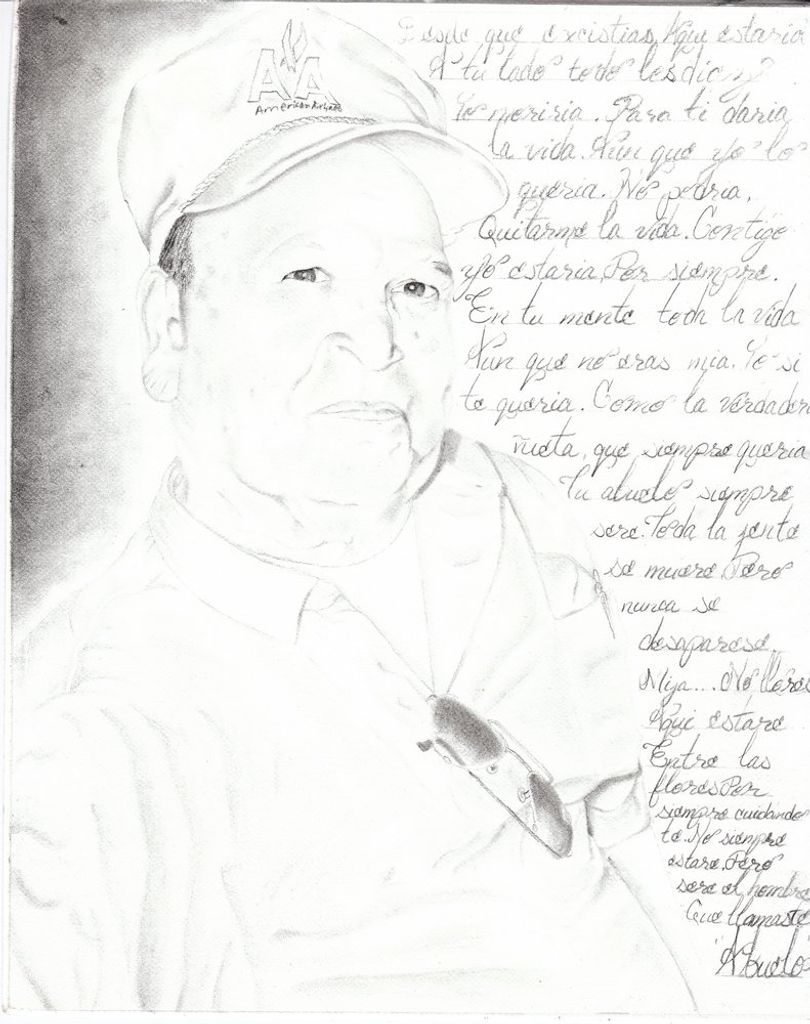 AA
American Airlines
Desde que excistias, Aqui estaria
A tu lado todo los dias y
Yo moriria. Para ti daria
la vida. Aun que yo lo
queria. No podria,
Quitarme la vida. Contigo
yo estaria, Por siempre.
En tu mente toda la vida
Aun que no eras mia. Yo si
te queria. Como la verdadera
ñieta, que siempre queria
Tu abuelo siempre
sere. Toda la jente
se muere. Pero
nunca se
desaparese.
Mija... No llores
Aqui estare
Entre las
flores Por
siempre cuidando
te. No siempre
estare. Pero
sere el hombre
Que llamaste
"Abuelo"